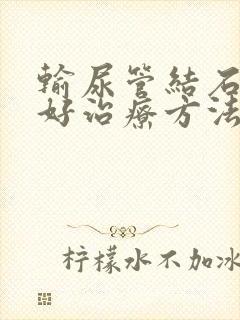 輸尿管結石
好治療方法
柠檬水不加冰